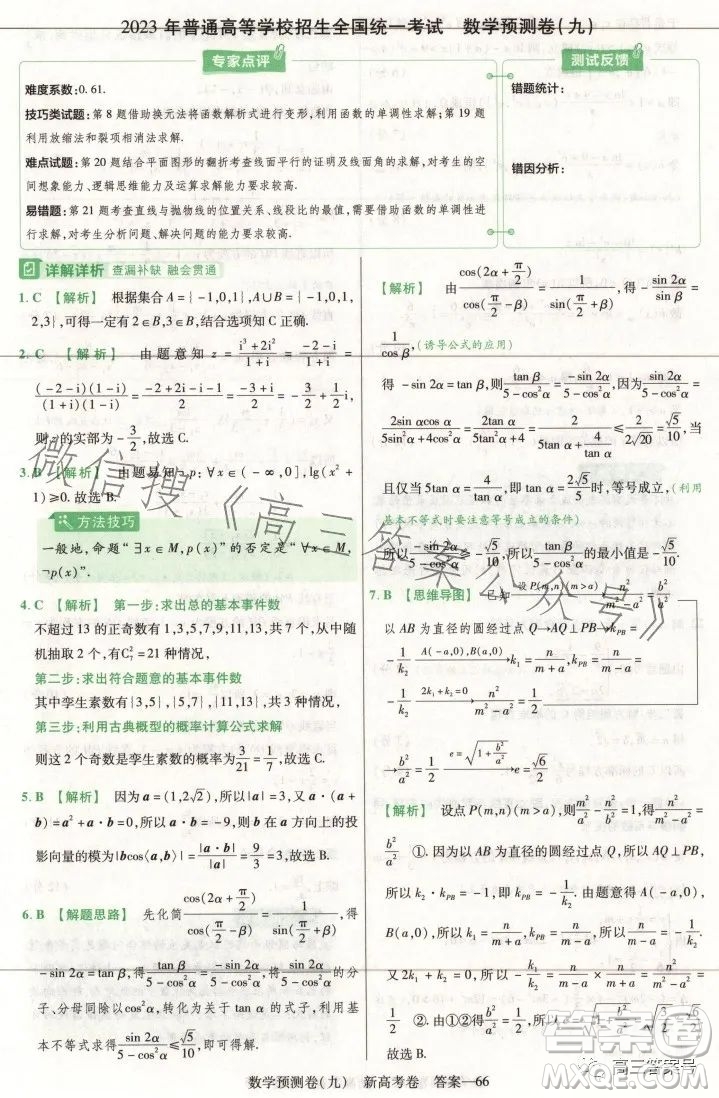 2023 年普通高等学校招生全国统一考试 数学预测卷(九)
专家点评
难度系数:0.61.
技巧类试题:第 8 题借助换元法将函数解析式进行变形,利用函数的单调性求解;第 19 题
利用放缩法和裂项相消法求解.
难点试题:第 20 题结合平面图形的翻折考查线面平行的证明及线面角的求解,对考生的空
间想象能力、逻辑思维能力及运算求解能力要求较高.
易错题:第 21 题考查直线与抛物线的位置关系、线段比的最值,需要借助函数的单调性进
行求解,对考生分析问题、解决问题的能力要求较高.
测试反馈
错题统计:
错因分析:
详解详析 查漏补缺 融会贯通
1. C 【解析】 根据集合 A={-1,0,1},A∪B={-1,0,1,
2,3},可得一定有 2∈B,3∈B,结合选项知 C 正确.
2. C 【解析】 由题意知 z=(i³+2i²)/(1+i)=(-2-i)/(1+i)=
((-2-i)(1-i))/((1+i)(1-i))=(-2+2i-i-1)/2=(-3+i)/2=-3/2+1/2 i,
则 z 的实部为 -3/2,故选 C.
3. B 【解析】 由题易知¬p:∀x∈(-∞,0],lg(x²+
1)≥0.故选 B.
方法技巧
一般地,命题“∃x∈M,p(x)”的否定是“∀x∈M,
¬p(x)”.
4. C 【解析】 第一步:求出总的基本事件数
不超过 13 的正奇数有 1,3,5,7,9,11,13,共 7 个,从中随
机抽取 2 个,有 C₇²=21 种情况,
第二步:求出符合题意的基本事件数
其中孪生素数有{3,5},{5,7},{11,13},共 3 种情况,
第三步:利用古典概型的概率计算公式求解
则这 2 个奇数是孪生素数的概率为 3/21=1/7,故选 C.
5. B 【解析】 因为 a=(1,2√2),所以|a|=3,又 a·(a+
b)=a²+a·b=0,所以 a·b=-9,则 b 在 a 方向上的投
影向量的模为|b|cos⟨a,b⟩|=|a·b|/|a|=9/3=3,故选 B.
6. B 【解题思路】 先化简 cos(2α+π/2)/cos(π/2-β)=1/cos(-β),得
-sin 2α=tan β,得 tan β/(5-cos²α)=-sin 2α/(5-cos²α),将式子的分
子、分母同除以cos²α,转化为关于 tan α 的式子,利用基
本不等式求得 sin 2α/(5-cos²α)≤√5/10,即可得解.
【解析】 由 cos(2α+π/2)/cos(π/2-β)=1/cos(-β),得 -sin 2α/sin β=
1/cos β,(诱导公式的应用)
得 -sin 2α=tan β,则 tan β/(5-cos²α)=-sin 2α/(5-cos²α),因为 sin 2α/(5-cos²α)=
2sin αcos α/(5sin²α+4cos²α)=2tan α/(5tan²α+4)=2/(5tan α+4/tan α)≤2/(2√20)=√5/10,当
且仅当 5tan α=4/tan α,即 tan α=2√5/5时,等号成立,(利用
基本不等式时要注意等号成立的条件)
所以 -sin 2α/(5-cos²α)≥-√5/10,所以 tan β/(5-cos²α) 的最小值是 -√5/10.
7. B 【思维导图】 已知 —设 P(m,n)(m>a)→ n²/(m²-a²)=b²/a²
以 AB 为直径的圆经过点 Q→AQ⊥PB→k_PB=
-1/k₂ —A(-a,0),B(a,0)→ k₁=n/(m+a),k_PB=n/(m-a)=
-1/k₂ —2k₁+k₂=0→ n²/(m²-a²)=1/2
→b²/a²=1/2 —e=√(1+b²/a²)→ e=√6/2
【解析】 设点 P(m,n)(m>a),则m²/a²-n²/b²=1,得n²/(m²-a²)=
b²/a² ①.因为以 AB 为直径的圆经过点 Q,所以 AQ⊥PB,
所以 k₂·k_PB=-1,k_PB=-1/k₂.由题意得 A(-a,0),
B(a,0),所以 k₁=n/(m+a),k_PB=n/(m-a),所以-1/k₂=n/(m-a).
又 2k₁+k₂=0,所以-k₁/k₂=n/(m+a)×n/(m-a)=n²/(m²-a²)=
1/2 ②.由①②得b²/a²=1/2,
数学预测卷(九) 新高考卷 答案—66
微信搜《高三答案公众号》
答案圈
高三答案号